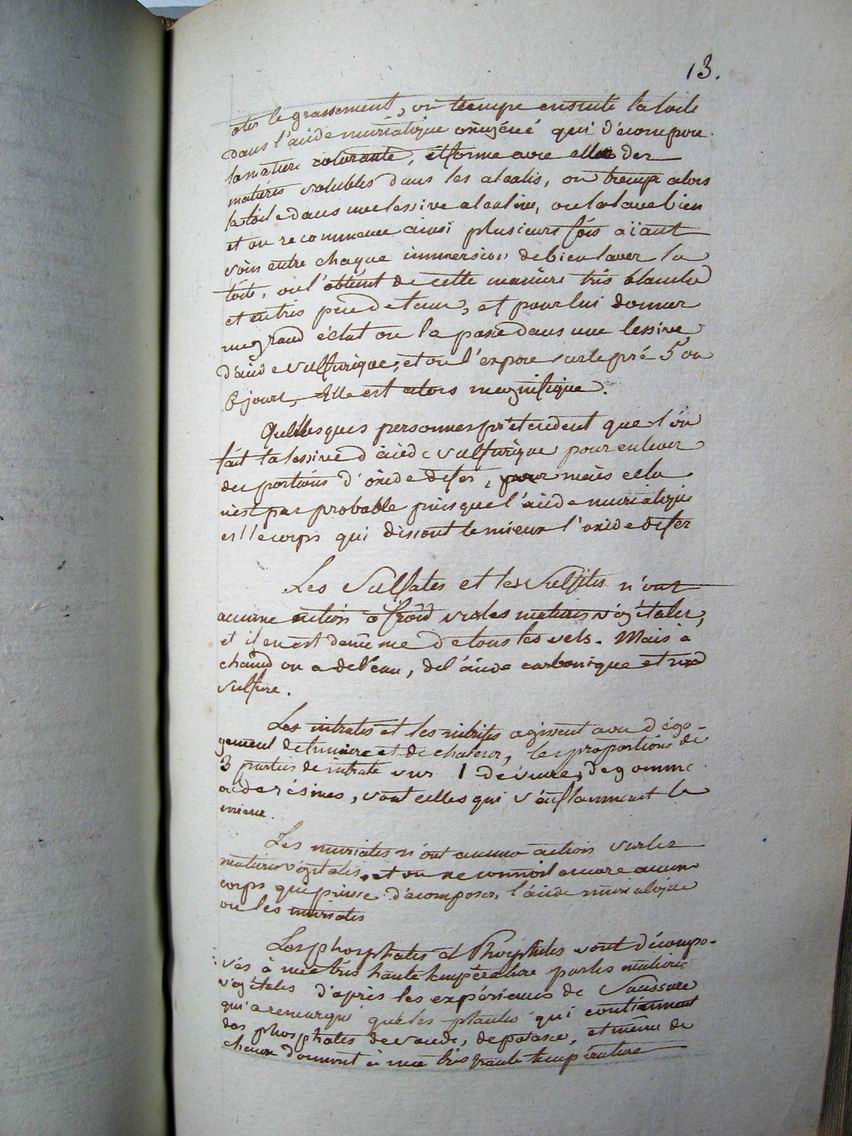 13.
oter le graissement, on trempe ensuite la toile
dans l'acide muriatique oxigéné qui décompose
la matiere colorante, et forme avec elle des
matieres solubles dans les alcalis, on trempe alors
la toile dans une lessive alcaline, on la lave bien
et on recommence ainsi plusieurs fois aïant
soin entre chaque immersion de bien laver la
toile, on l'obtient de cette maniere tres blanche
et en tres peu de tems, et pour lui donner
un grand éclat on la passe dans une lessive
d'acide sulfurique, et on l'expose sur le pré 5 ou
6 jours, elle est alors magnifique.
Quelques personnes prétendent que l'on
fait la lessive d'acide sulfurique pour enlever
des portions d'oxide de fer, mais cela
n'est pas probable puisque l'acide muriatique
est le corps qui dissout le mieux l'oxide de fer
Les Sulfates et les Sulfites n'ont
aucune action à froid sur les matieres végétales,
et il en est de même de tous les sels. Mais à
chaud on a de l'eau, de l'acide carbonique et un
sulfure.
Les nitrates et les nitrites agissent avec déga-
gement de lumiere et de chaleur, les proportions de
3 parties de nitrate sur 1 de sucre, de gomme
ou de résines, sont celles qui s'enflamment le
mieux.
Les muriates n'ont aucune action sur les
matieres végétales, et on ne connoit encore aucun
corps qui puisse décomposer l'acide muriatique
ou les muriates
Les phosphates et Phosphites sont décompo-
sés à une tres haute température par les matieres
végétales d'après les expériences de Saussure
qui a remarqué que les plantes qui contiennent
des phosphates de soude, de potasse, et même de
chaux donnent à une tres haute température